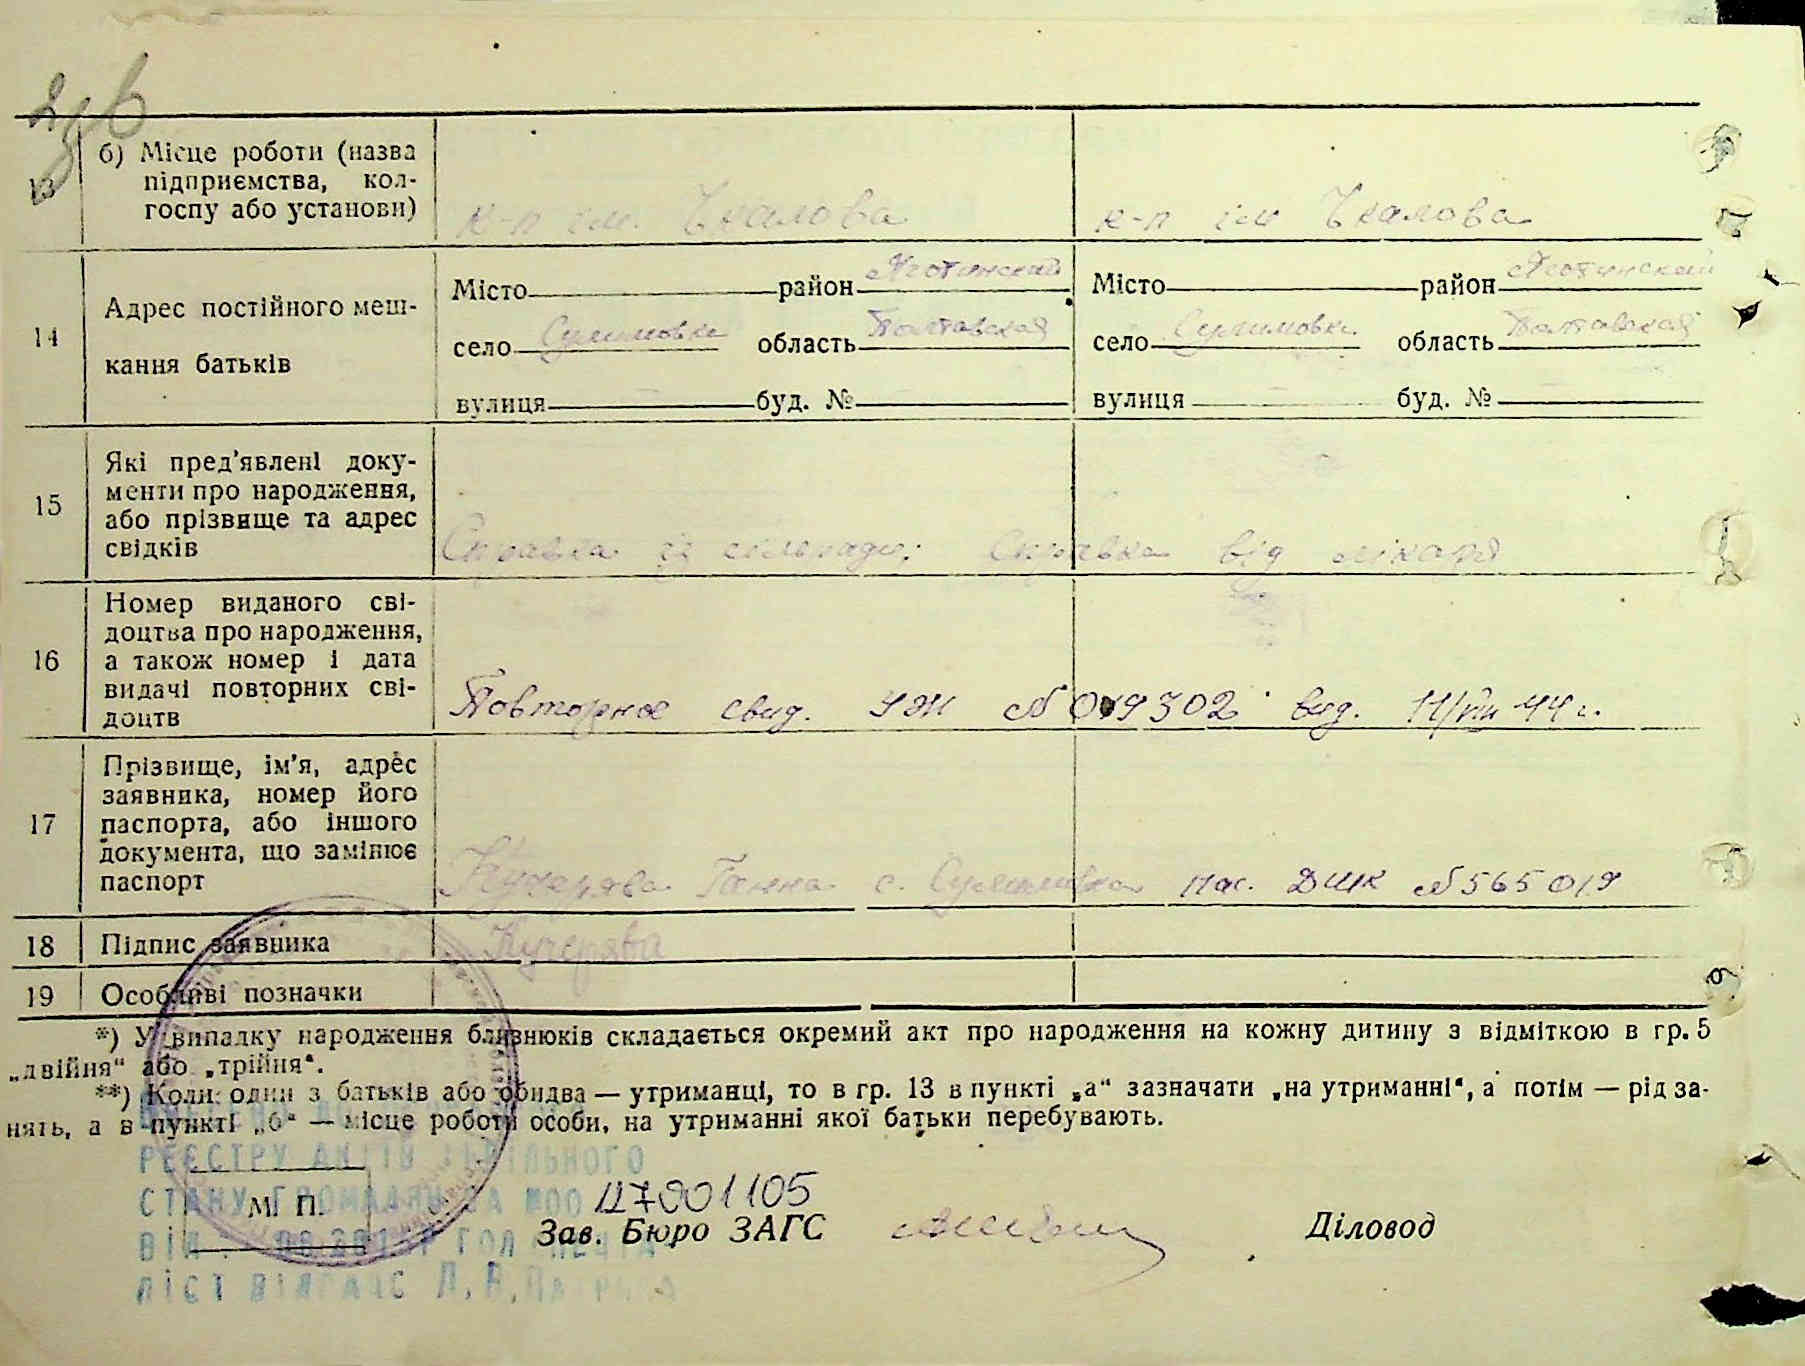 13 б) Місце роботи (назва
підприємства, кол-
госпу або установи)
к-п ім. Чкалова к-п ім Чкалова
Місто район Яготинский Місто район Яготинский
14 Адрес постійного меш-
кання батьків
село Сулимовка область Полтавская село Сулимовка область Полтавская
вулиця буд. № вулиця буд. №
15 Які пред'явлені доку-
менти про народження,
або прізвище та адрес
свідків
Справка із сільради; Справка від лікаря
16 Номер виданого сві-
доцтва про народження,
а також номер і дата
видачі повторних сві-
доцтв
Повторное свид. УЖ № 019302 выд. 11/VIII 44 г.
17 Прізвище, ім'я, адрес
заявника, номер його
паспорта, або іншого
документа, що замінює
паспорт
Кучерява Ганна с. Сулимовка пас. ДШК № 565019
18 Підпис заявника Кучерява
19 Особливі позначки
*) У випадку народження близнюків складається окремий акт про народження на кожну дитину з відміткою в гр. 5
„двійня“ або „трійня“.
**) Коли один з батьків або обидва — утриманці, то в гр. 13 в пункті „а“ зазначати „на утриманні“, а потім — рід за-
нять, а в пункті „б“ — місце роботи особи, на утриманні якої батьки перебувають.
РЕЄСТРУ АКТІВ ЦИВІЛЬНОГО
СТАНУ ГРОМАДЯН ЗА №00 117001105
М. П.
Зав. Бюро ЗАГС Діловод
ВІД ГОЛ